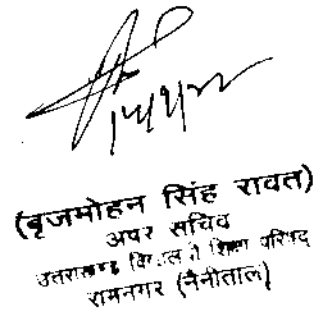 (बृजमोहन सिंह रावत)
अपर सचिव
उत्तराखण्ड शिक्षा परिषद
रामनगर (नैनीताल)